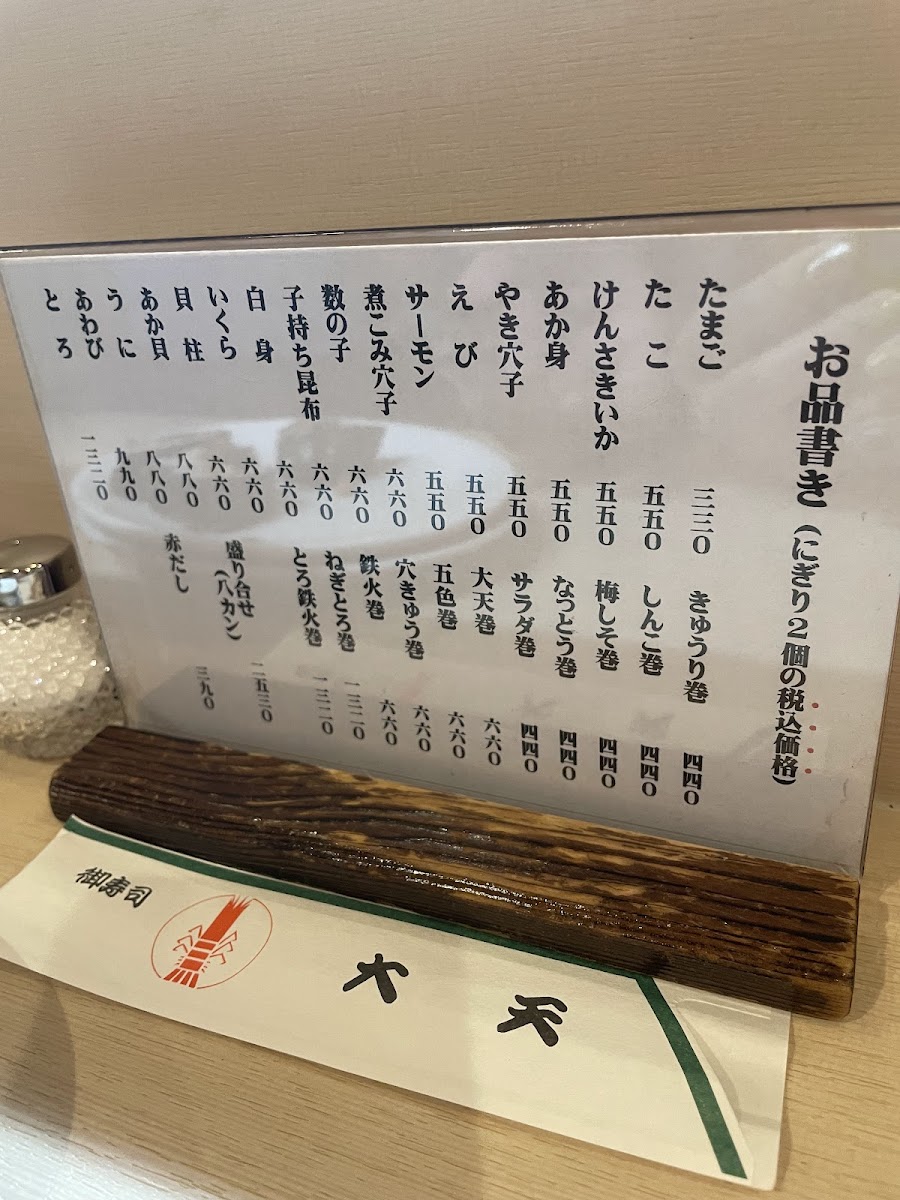 お品書き(にぎり2個の税込価格)
たまご 三三〇
たこ 五五〇
けんさきいか 五五〇
あか身 五五〇
やき穴子 五五〇
えび 五五〇
サーモン 五五〇
煮こみ穴子 六六〇
数の子 六六〇
子持ち昆布 六六〇
白身 六六〇
いくら 六六〇
貝柱 六六〇
あか貝 八八〇
うに 八八〇
あわび 九九〇
とろ 一三二〇
きゅうり巻 四四〇
しんこ巻 四四〇
梅しそ巻 四四〇
なっとう巻 四四〇
サラダ巻 四四〇
大天巻 六六〇
五色巻 六六〇
穴きゅう巻 六六〇
鉄火巻 六六〇
ねぎとろ巻 一三二〇
とろ鉄火巻 一三二〇
盛り合せ
(八カン) 二五三〇
赤だし 三九〇
御寿司
大天